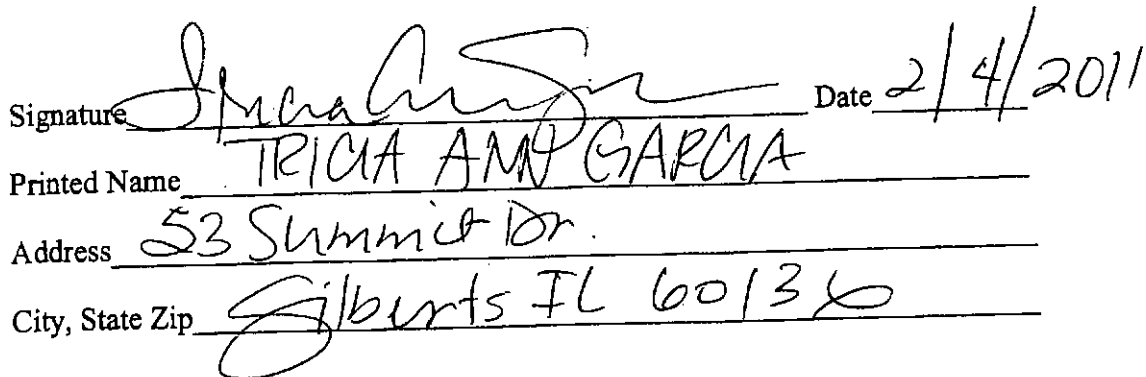 Signature Tricia Date 2/4/2011
Printed Name TRICIA ANN GARCIA
Address 53 Summit Dr.
City, State Zip Gilberts IL 60136